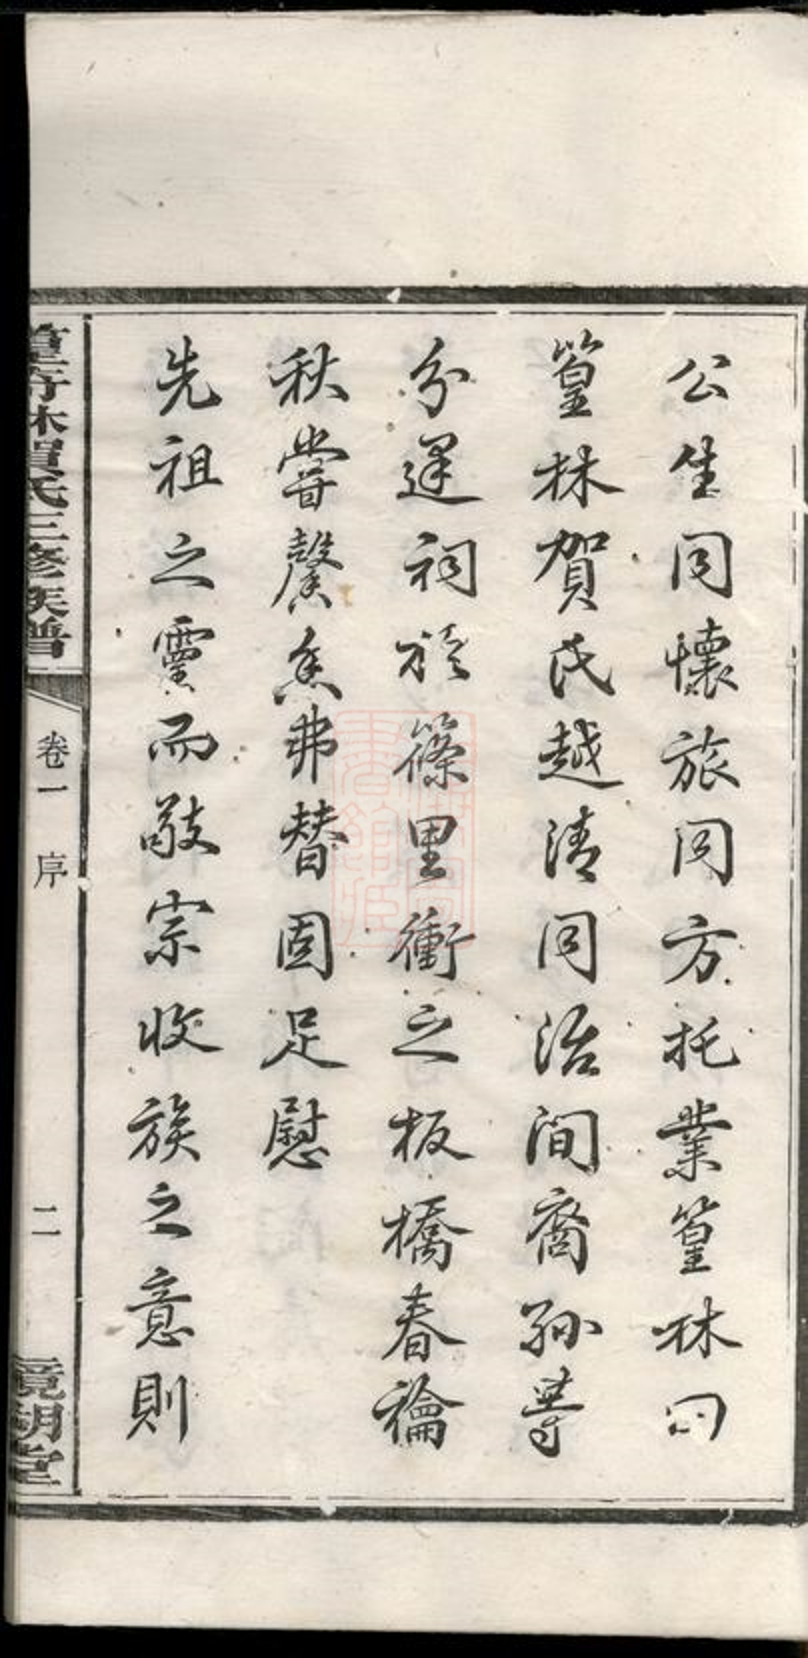 公生同懷旅同方托業篁林曰
篁林賀氏越清同治間裔孫等
分遷祠於篠里衝之板橋春禴
秋嘗馨香弗替固足慰
先祖之靈而敬宗收族之意則
林賀氏三修族譜
卷一
序
二
鏡湖堂